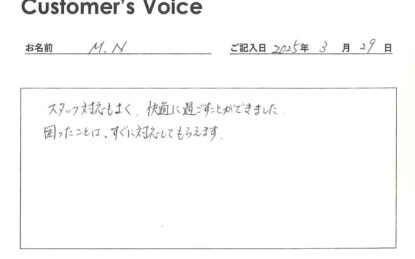 Customer's Voice
お名前 M.N ご記入日 2025年 3月 29日
スタッフ対応もよく、快適に過ごすことができました。
困ったことは、すぐに対応してもらえます。